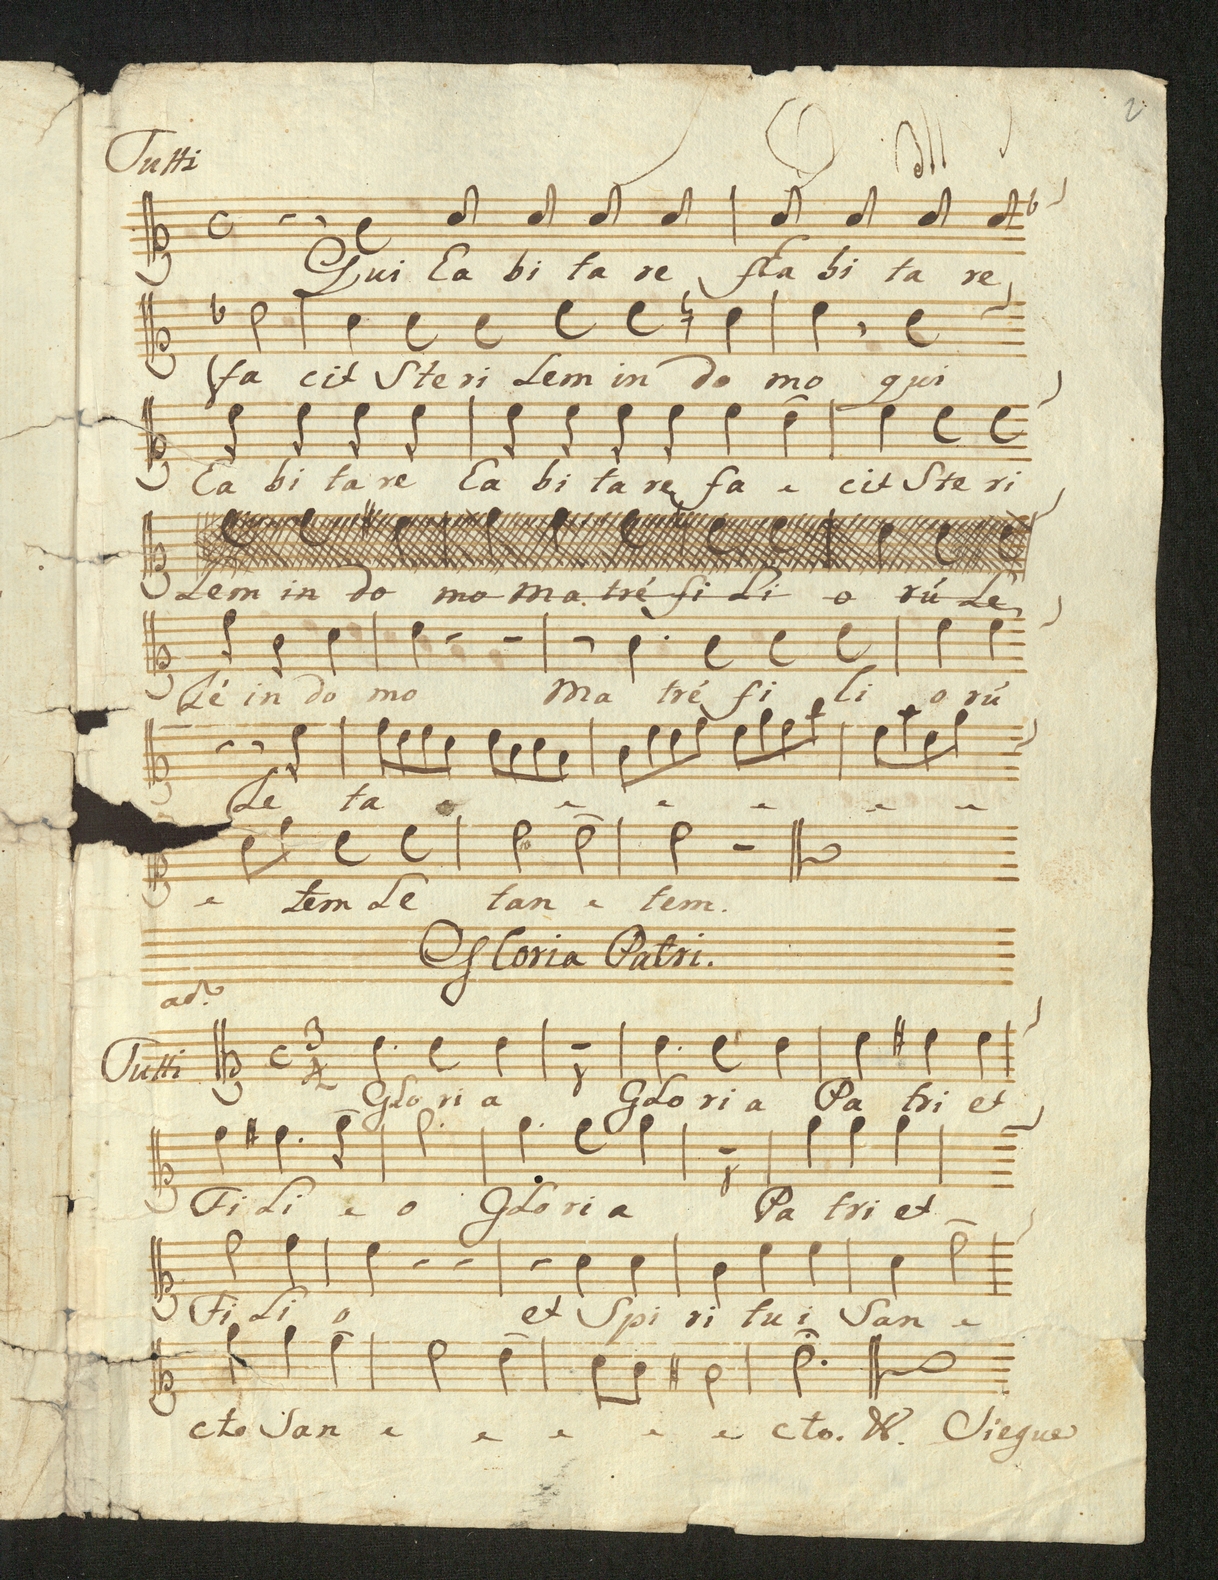 2
Tutti
Qui Ea bi ta re Ea bi ta re
fa cit Ste ri Lem in do mo qui
Ea bi ta re Ea bi ta re fa e cit Ste ri
Lem in do mo Ma tré fi Li o rú Le
Lé in do mo Ma tré fi Li o rú
Le ta e e e e e
e tem Le tan e tem.
Gloria Patri.
ad.º
Tutti
C 3/4
Glo ri a Glo ri a Pa tri et
Fi Li e o Glo ri a Pa tri et
Fi Li o et Spi ri tu i San e
cto San e e e e e cto. Siegue